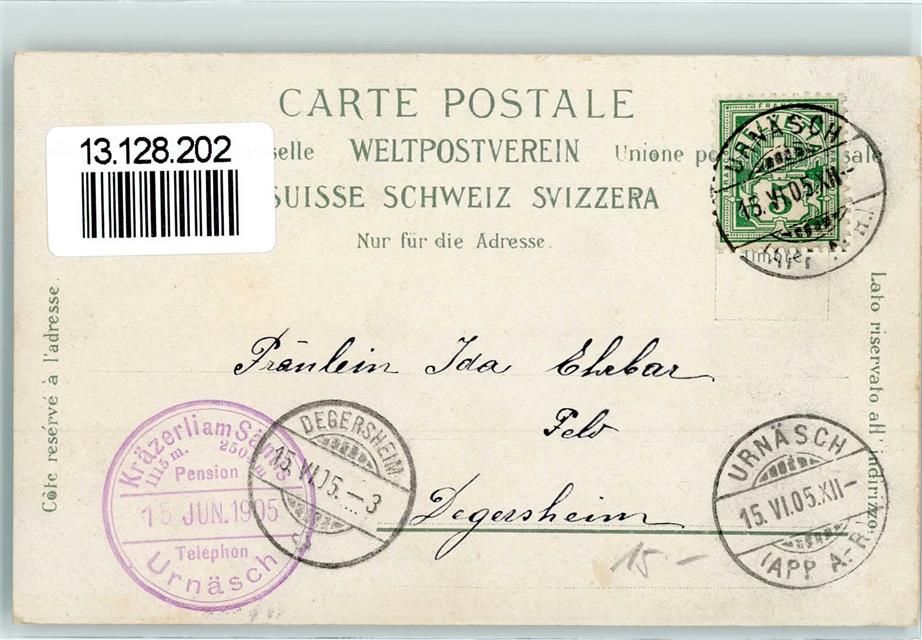 CARTE POSTALE
13.128.202
selle WELTPOSTVEREIN Unione po sale
SUISSE SCHWEIZ SVIZZERA
Nur für die Adresse.
URNÄSCH
15.VI.05.XII-
(APP. A.-RH.)
5
FRAN
Timbre
Côté réservé à l'adresse
Lato riservato all'indirizzo
Fräulein Ida Ehrbar
Feld
Degersheim
Kräzerli am Säntis
1115 m. 2504 m
Pension
15 JUN. 1905
Telephon
Urnäsch
DEGERSHEIM
15.VI.05.-3
URNÄSCH
15.VI.05.XII-
(APP. A.-RH.)
15.-